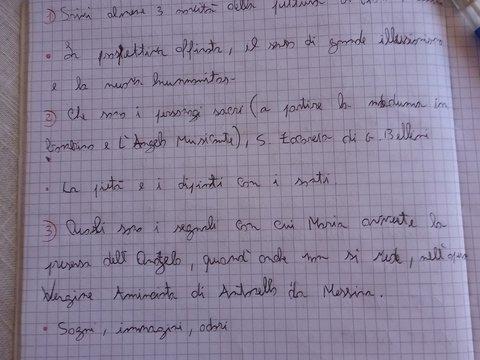 1) Scrivi almeno 3 novità della pittura di
• La prospettiva, il senso di grande illusionismo
e la nuova
2) Che sono i personaggi sacri (a partire la madonna in
bambino e l'Angelo Musicante), S. Zaccaria di G. Bellini
• La pietà e i dipinti con i santi.
3) Quali sono i segnali con cui Maria avverte la
presenza dell'Angelo, quand'anche non si vede, nell'opera
Vergine Annunciata di Antonello da Messina.
• Sogni, immagini, odori